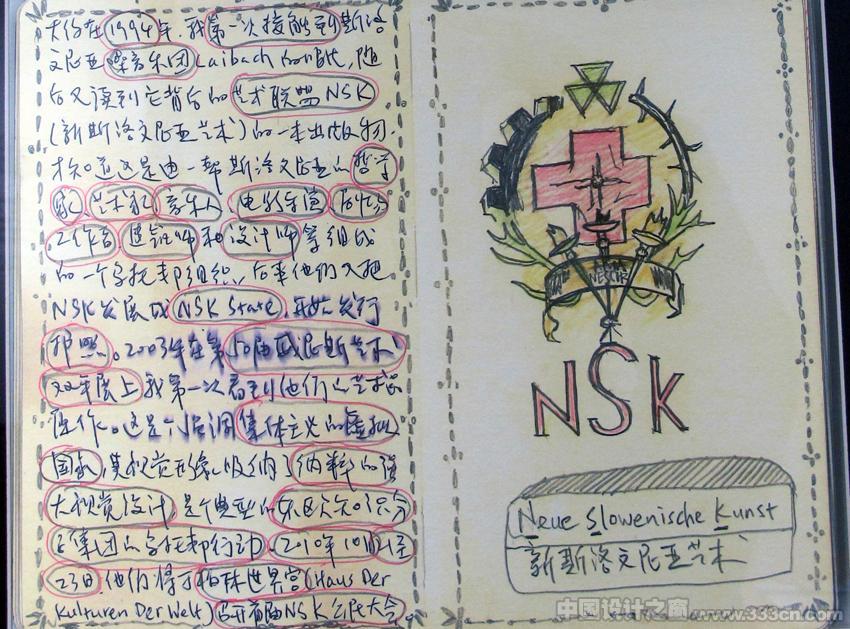 大约在1994年，我第一次接触到斯洛
文尼亚 音乐团Laibach的唱片，随
后又读到它背后的艺术联盟NSK
(新斯洛文尼亚艺术)的一本出版物.
才知道这是由一帮斯洛文尼亚的哲学
家、艺术家、音乐人、电影导演、
工作者、建筑师和设计师等组成
的一个乌托邦组织。后来他们又把
NSK发展成NSK State，开始发行
护照。2003年在第50届威尼斯艺术
双年展上我第一次看到他们的艺术
。这是个 集体主义的虚拟
国家，其视觉形象吸纳了纳粹的强
大视觉设计，是个典型的东区知识分
子集团的乌托邦行动。2010年10月21至
23日，他们将于柏林世界宫(Haus Der
Kulturen Der Welt)召开首届NSK公民大会。
NSK
Neue Slowenische Kunst
新斯洛文尼亚艺术
中国设计之窗 www.333cn.com